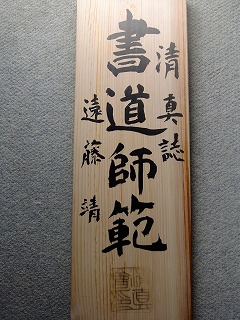 清真誌
書道師範
遠藤靖